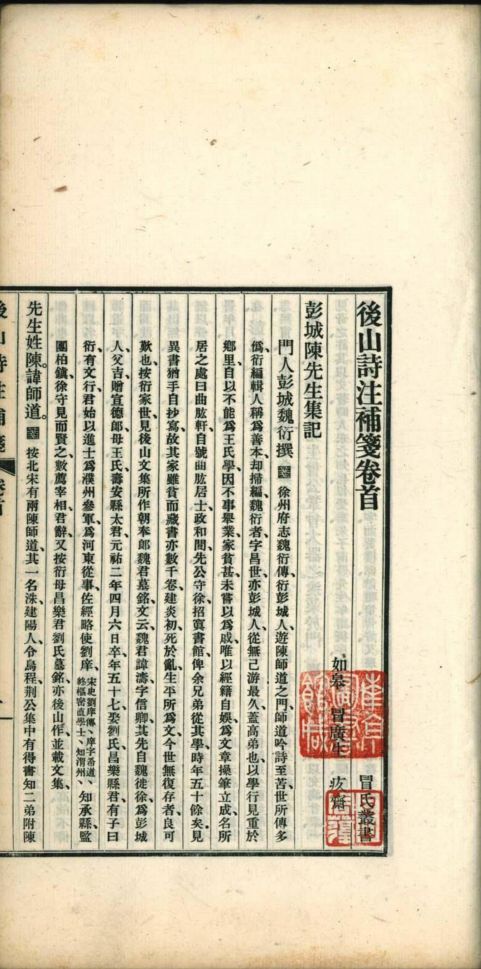 後山詩注補箋卷首
冒氏叢書
如皋 冒廣生 疚齋
彭城陳先生集記
門人彭城魏衍撰 箋 徐州府志魏衍傳衍彭城人、遊陳師道之門、師道吟詩至苦、世所傳多
僞、衍編輯、人稱爲善本、却掃編、魏衍者、字昌世、亦彭城人、從無己游最久、蓋高弟也、以學行見重於
鄉里、自以不能爲王氏學、因不事舉業、家貧甚、未嘗以爲戚、唯以經籍自娛、爲文章、操筆立成、名所
居之處曰曲肱軒、自號曲肱居士、政和間、先公守徐、招寘書館、俾余兄弟從其學、時年五十餘矣、見
異書猶手自抄寫、故其家雖貧、而藏書亦數千卷、建炎初、死於亂、生平所爲文、今世無復存者、良可
歎也、按衍家世見後山文集所作朝奉郎魏君墓銘、文云、魏君諱濤、字信卿、其先自魏徙徐、爲彭城
人、父吉、贈宣德郎、母王氏、壽安縣太君、元祐二年四月六日卒、年五十七、娶劉氏、昌樂縣君、有子曰
衍、有文行、君始以進士爲濮州參軍、爲河東從事、佐經略使劉庠、宋史劉庠傳、庠字希道、終樞密直學士、知渭州、知承縣、監
團柏鎮、徐守見而賢之、數薦宰相、君辭、又按衍母昌樂君劉氏墓銘、亦後山作、並載文集、
先生姓陳。諱師道。箋 按北宋有兩陳師道、其一名洙、建陽人、令烏程、荊公集中有得書知二弟附陳
後山詩注補箋 卷首 一